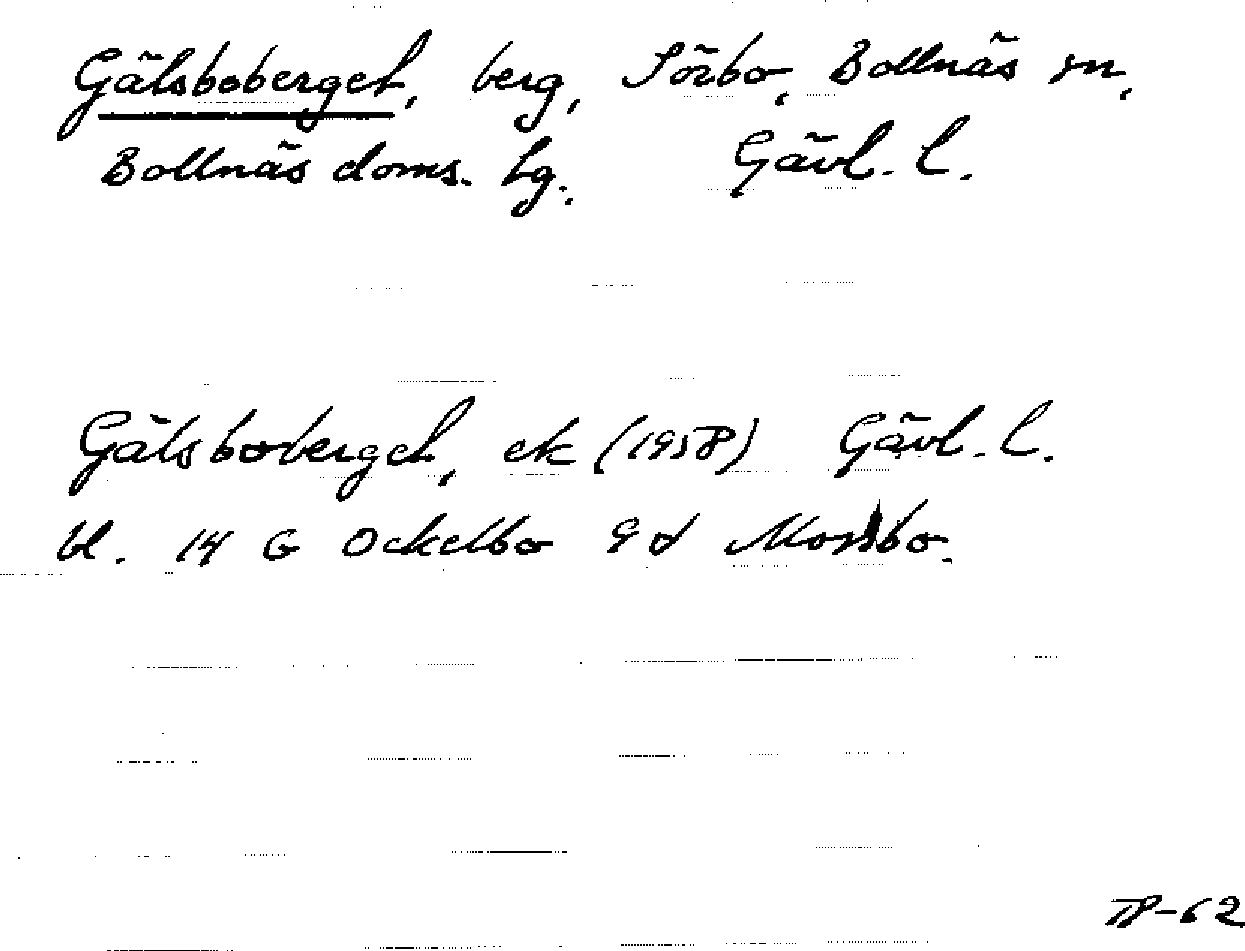 Gälsboberget, berg, Sörbo, Bollnäs sn,
Bollnäs doms. hg. Gävl. l.
Gälsboberget, ek (1958) Gävl. l.
bl. 14 G Ockelbo 9 d Mossbo.
TP-62